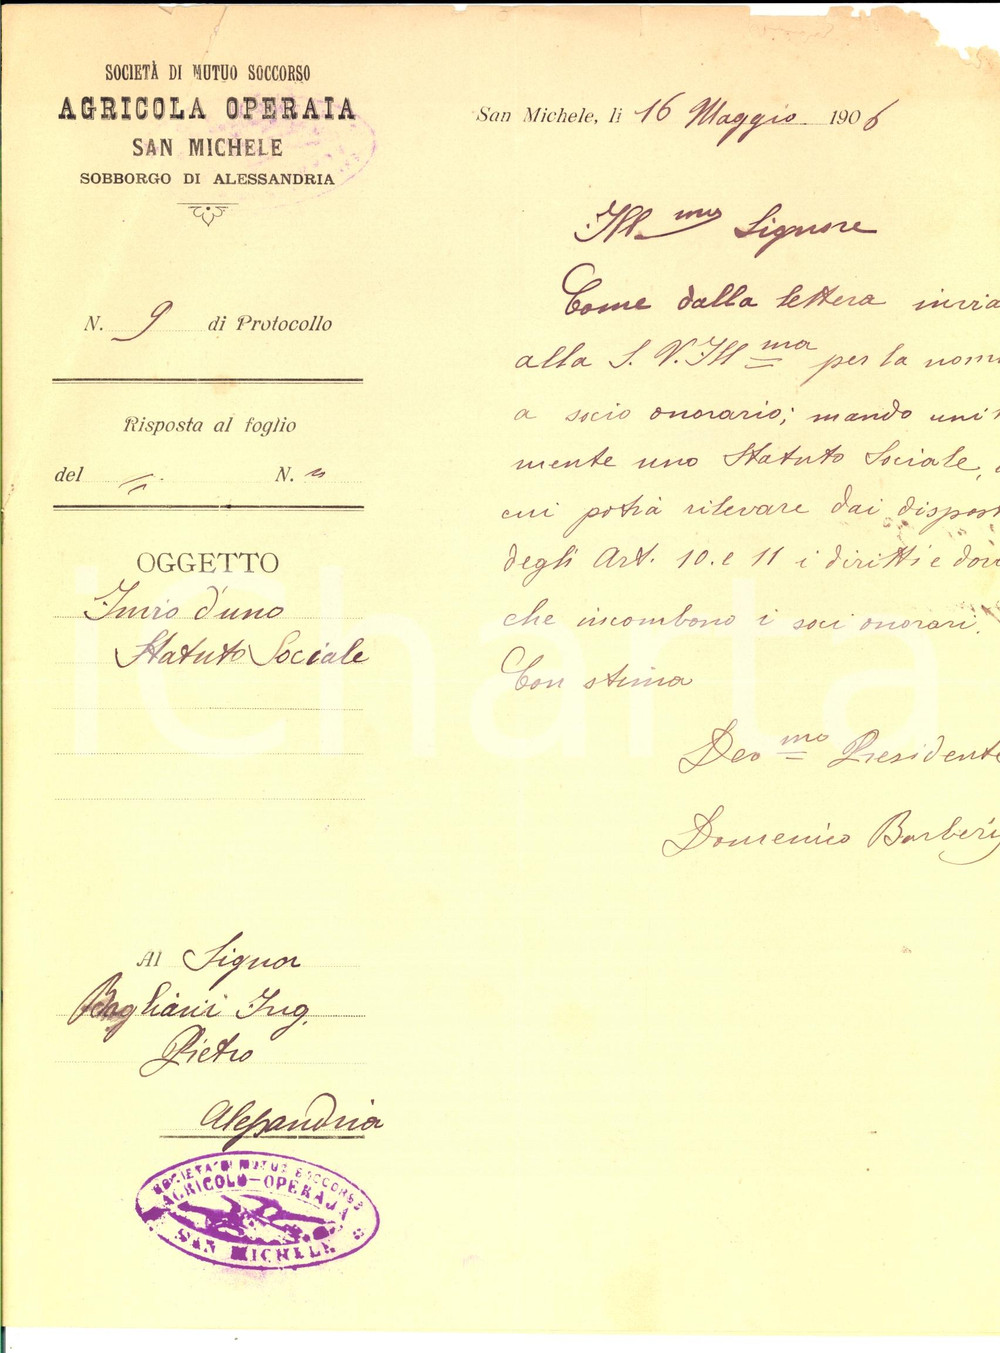 SOCIETÀ DI MUTUO SOCCORSO
AGRICOLA OPERAIA
SAN MICHELE
SOBBORGO DI ALESSANDRIA
N. 9 di Protocollo
Risposta al foglio
del = N. "
OGGETTO
Invio d'uno
Statuto Sociale
Al Signor
Bagliani Ing.
Pietro
Alessandria
SOCIETA DI MUTUO SOCCORSO
AGRICOLO-OPERAJA
SAN MICHELE
San Michele, li 16 Maggio 1906
Ill.mo Signore
Come dalla lettera invia
alla S. V. Ill.ma per la nomi
a socio onorario; mando unit
mente uno Statuto Sociale,
cui potrà rilevare dai dispost
degli Art. 10. e 11 i diritti e dov
che incombono i soci onorari.
Con stima
Dev.mo Presidente
Domenico Barberis
iCharta